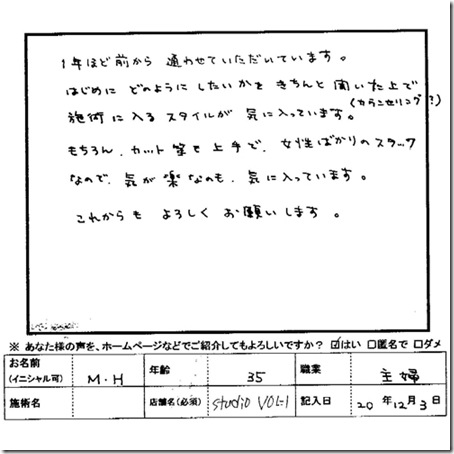 1年ほど前から 通わせていただいています。
はじめに どのように したいか を きちんと 聞いた上で
(カウンセリング?)
施術に入る スタイルが 気に入っています。
もちろん、カット 等も 上手で、女性ばかりの スタッフ
なので、気が 楽なのも、気に入っています。
これからも よろしく お願いします。
※ あなた様の声を、ホームページなどでご紹介してもよろしいですか? ☑はい □匿名で □ダメ
お名前(イニシャル可) M・H 年齢 35 職業 主婦
施術名 店舗名(必須) studio VOL-1 記入日 20年12月3日